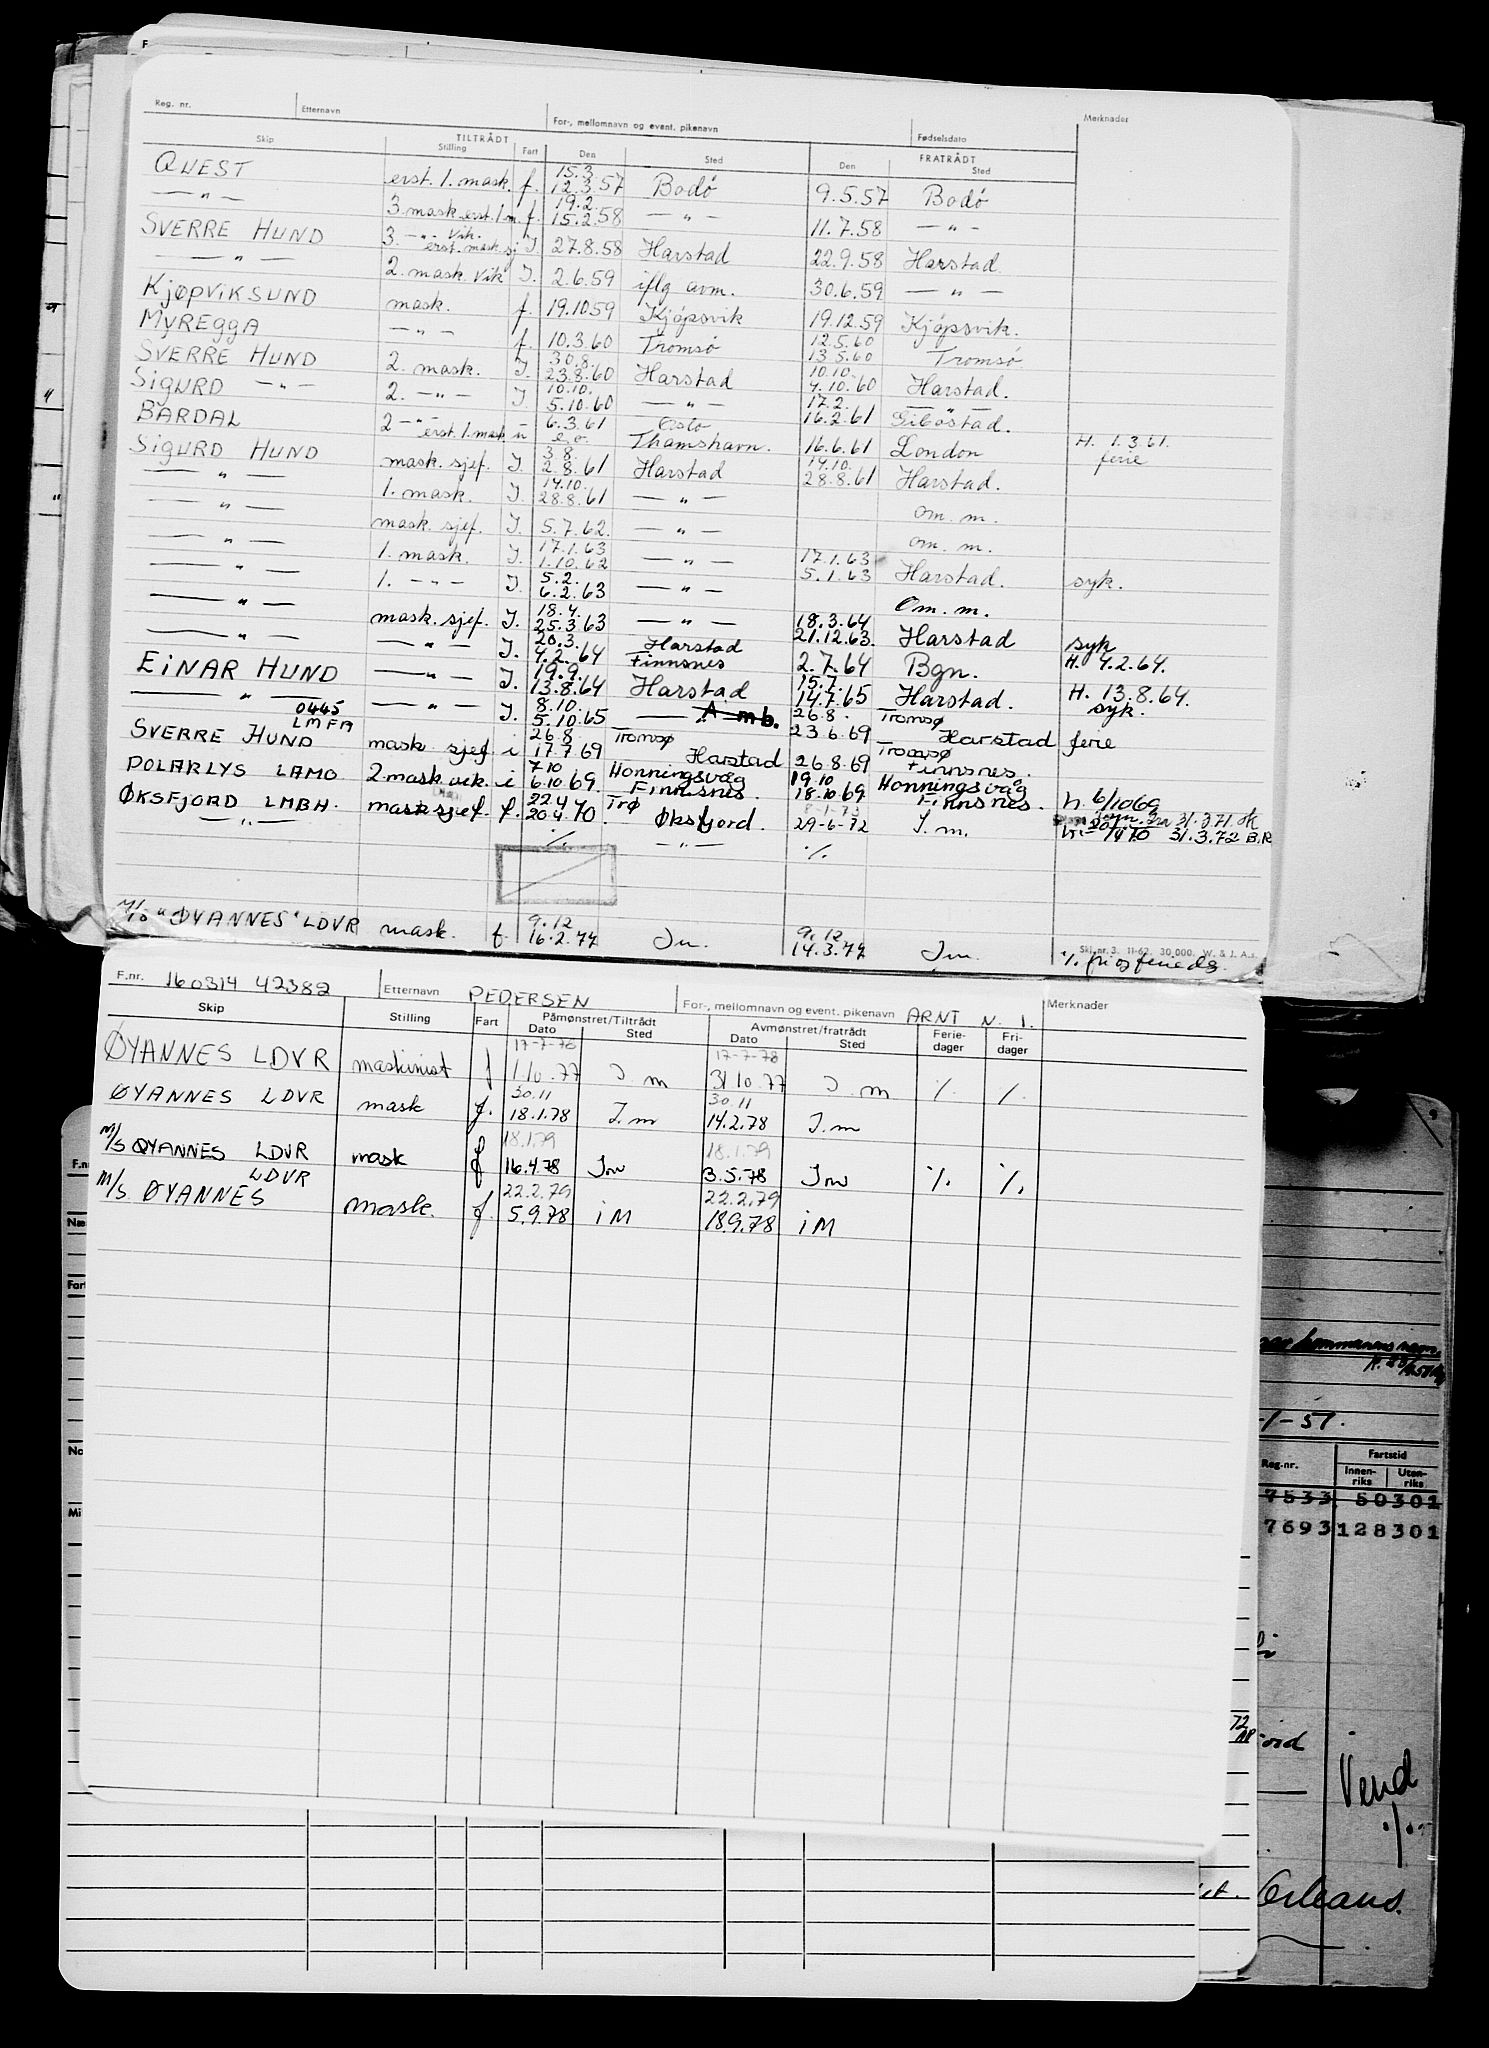 Reg. nr. Etternavn For-, mellomnavn og event. pikenavn Fødselsdato Merknader
Skip TILTRÅDT Stilling Fart Den Sted Den FRATRÅDT Sted
QUEST erst. 1. mask. f. 15.3. 12.3.57 Bodö 9.5.57 Bodö
— " — 3. mask. erst. 1 m. f. 19.2. 15.2.58 — " — 11.7.58 — " —
SVERRE HUND 3. — " — vik. erst. mask. sj. I. 27.8.58 Harstad 22.9.58 Harstad
— " — 2. mask. vik I. 2.6.59 iflg avm. 30.6.59 — " —
KJØPVIKSUND mask. f. 19.10 59 Kjöpsvik 19.12.59 Kjöpsvik.
MYREGGA — " — f. 10.3.60 Tromsö 12.5.60 13.5.60 Tromsö
SVERRE HUND 2. mask. I. 30.8. 23.8.60 Harstad 10.10. 4.10.60 Harstad.
SIGURD — " — 2. — " — I 10.10. 5.10.60 — " — 17.2. 16.2.61 — " — Gibostad.
BARDAL 2 — " — erst. 1. mask u 6.3.61 e.o. Oslo Thamshavn. 16.6.61 London H. 1.3.61. ferie
SIGURD HUND mask. sjef. I. 3.8. 2.8.61 Harstad 14.10. 28.8.61 Harstad.
— " — 1. mask. I. 14.10. 28.8.61 — " — om. m.
— " — mask. sjef. I. 5.7.62. — " — om. m.
— " — 1. mask. I. 17.1.63 1.10.62 — " — 17.1.63 5.1.63 Harstad. syk.
— " — 1. — " — I 5.2. 6.2.63 — " — Om. m.
— " — mask. sjef. I. 18.4. 25.3.63 — " — 18.3.64 21.12.63. Harstad syk
— " — — " — I. 20.3. 4.2.64 Harstad Finnsnes 2.7.64 Bgn. H. 4.2.64.
EINAR HUND — " — I. 19.9. 13.8.64 Harstad 15.7. 14.7.65 Harstad. H. 13.8.64.
— " — 0445 LMFA — " — I. 8.10. 5.10.65 — " — A mb. 26.8. 23.6.69 Tromsø Harstad syk. ferie
SVERRE HUND mask sjef i 26.8 17.7.69 Tromsø Harstad 26.8.69 Tromsø Finnsnes.
POLARLYS LAMO 2 mask vik. i 7.10 6.10 69. Honningsvåg Finnsnes. 19.10 18.10 69 Honningsvåg Finnsnes. h. 6/10 69
ØKSFJORD LMBH. mask sjef f. 22.4 20.4 70 Trø Øksfjord. 29-6-72 I. m. 31.3.71
— " — ./. — " — ./. 31.3.72 B.R
M/S "ØYANNES" LDVR mask. f. 9.12 16.2.77 Im. 9.12 14.3.77 Im ./. fri og feriedg.
Skj. nr. 3. 11-62. 30.000. W. & J. A.s.
F.nr. 160314 42382 Etternavn PEDERSEN For-, mellomnavn og event. pikenavn ARNT N. I. Merknader
Skip Stilling Fart Påmønstret/Tiltrådt Dato Sted Avmønstret/fratrådt Dato Sted Ferie-dager Fri-dager
ØYANNES LDVR maskinist f 17-7-78 1.10.77 I m 17-7-78 31.10.77 I. m ./. ./.
ØYANNES LDVR mask f. 30.11 18.1.78 I. m 30.11 14.2.78 I. m
M/S ØYANNES LDVR mask f 18.1.79 16.4.78 Im 18.1.79 3.5.78 Im ./. ./.
M/S. ØYANNES LDVR mask. f. 22.2.79 5.9.78 iM 22.2.79 18.9.78 iM
-1-57.
Reg.nr. Fartstid
Innen-riks Uten-riks
7533 50301
7693 128301
Vend
Orleans.